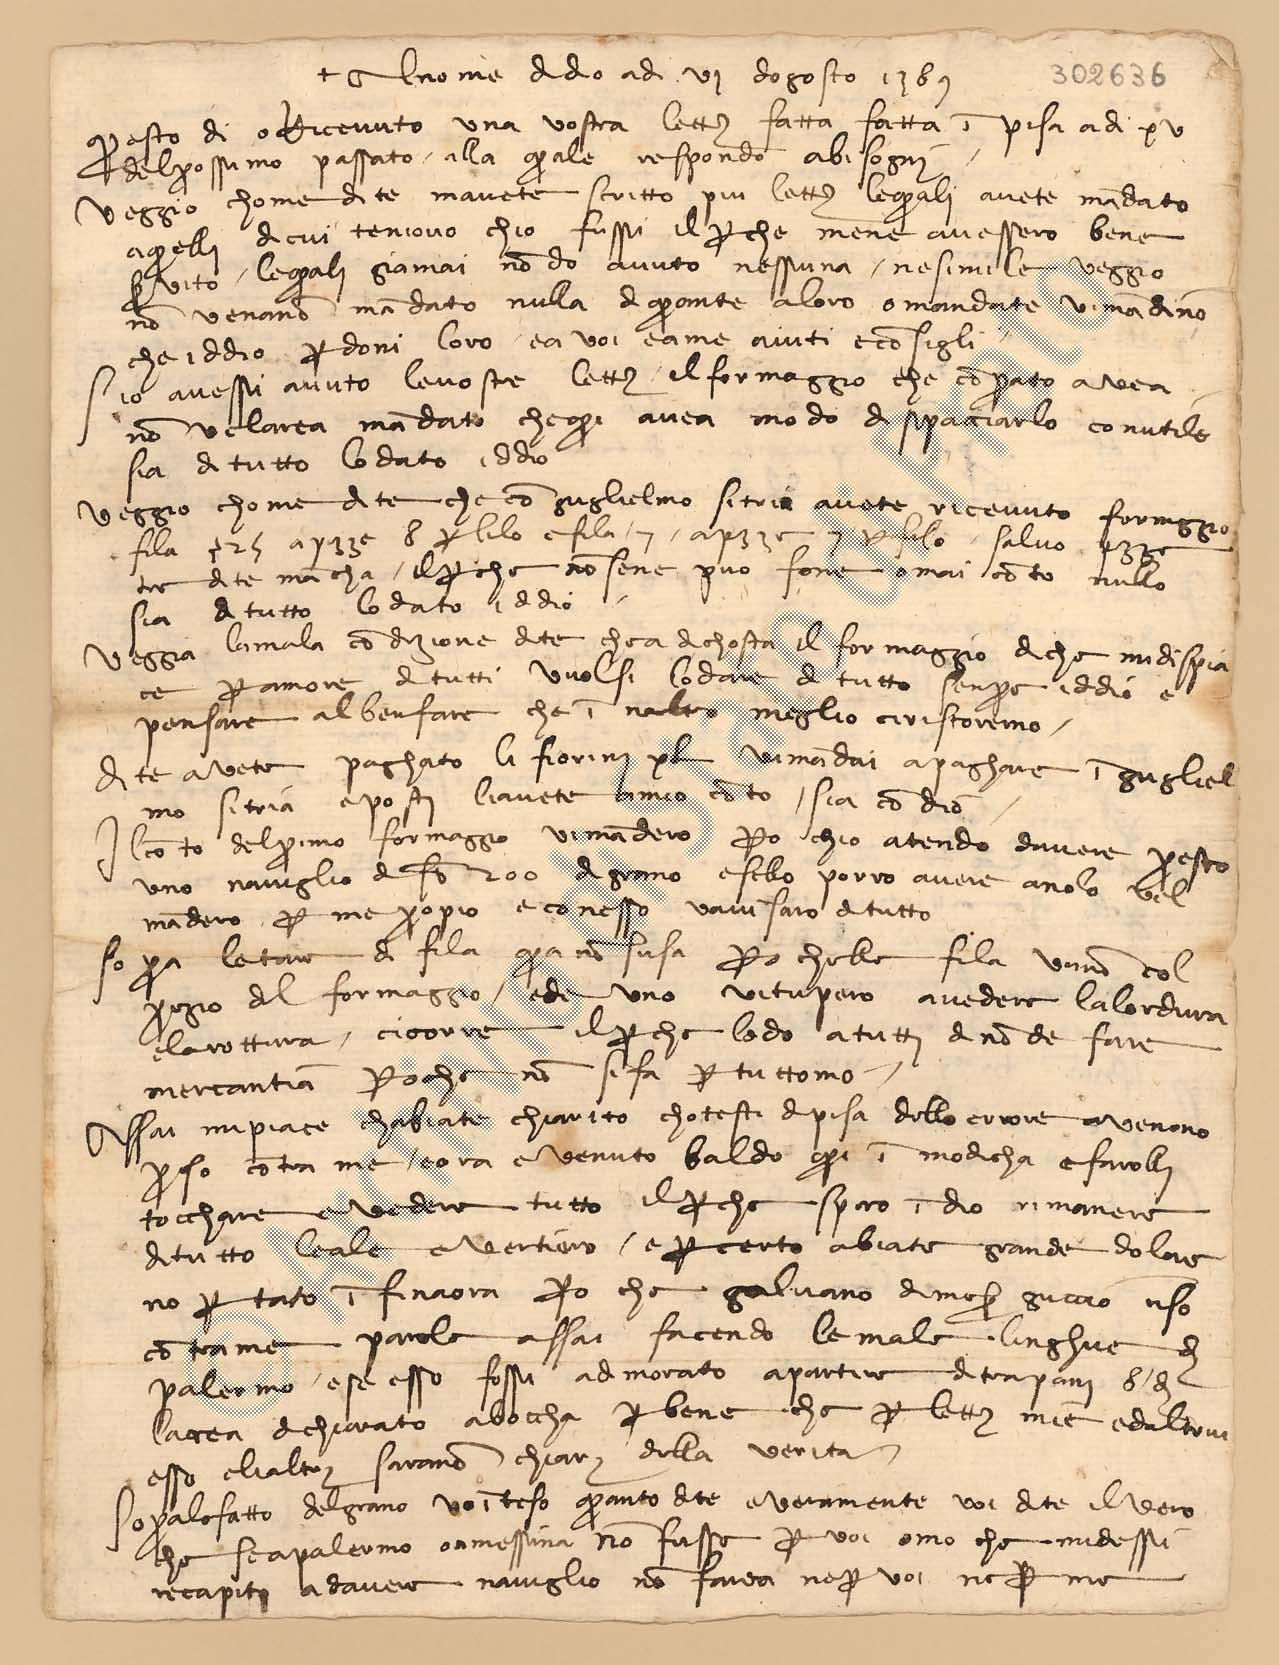 + Al nome di dio adi vi dogosto 1389
302636
questo di o Ricevuto una vostra lettera fatta fatta i pisa adi xv
del prossimo passato / alla quale respondo abisogni /
veggio chome dite mavete scritto piu lettere lequali avete mãdato
aquelli dicui teniovo chio fussi il perche mene avessero bene
servito / lequali giamai nõ do avuto nessuna / nesimile veggio
nõ venanõ mãdato nulla di quante aloro o mandate vimãdinõ
che iddio perdoni loro / ea voi eame aiuti e cõsigli
S io avessi avuto levostre lettere / il formaggio che cõprato avea
nõ velarea mãdato chequi avea modo di spacciarlo conutile
sia di tutto lodato iddio
veggio chome dite che cõ guglielmo sitria avete ricevuto formaggio
fila 525 a pezze 8 per filo e fila / 7 / a pezze 7 per filo / salvo pezze
tre dite mãcha / il perche nõ sene puo fone omai cõto nullo
sia di tutto lodato iddio /
veggia lamala cõdizione dite chea dichosta il formaggio diche midispia
ce per amore di tutti vuolsi lodare di tutto senpre iddio e
pensare albenfare che i naltro meglio ciristoremo /
dite avete paghato li fiorini xl vimãdai apaghare i gugliel
mo sitria eposti liavete amio cõto / sia cõ dio /
Il cõto delprimo formaggio vimãdero pero chio atendo davere questo
uno naviglio di 200 di grano esello porro avere anolo vel
mãdero per me propio e conesso vavisaro di tutto
so pra letare di fila qua nõ susa pero chelle fila vanõ col
prezio del formaggio / ede uno vitupero avedere lalordura
elarottura / cicorre il perche lodo atutti di nõ de fare
mercantia peroche nõ sifa per tuttomo /
Assai mipiace chabiate chiarito chotesti di pisa dello errore avenano
preso cõtra me / eora e venuto baldo qui i modicha efarolli
tocchare evedere tutto il perche spero i dio rimanere
di tutto leale evertiero / e per certo abiate grande dolore
no per tato i finaora pero che galvano dimeser guccio uso
cõtrame parole assai facendo lemale linghue di
palermo / ese esso fossi adimorato apartire di trapani 8 di
larea dichiarato aboccha per bene che per lettere mie edaltrui
esso elialtri saranõ chiari della verita
Sopralofatto delgrano vo iteso quanto dite everamente voi dite ilvero
che seapalermo oamessina nõ fusse per voi omo che midessi
recapito adavere naviglio nõ farea neper voi neper me